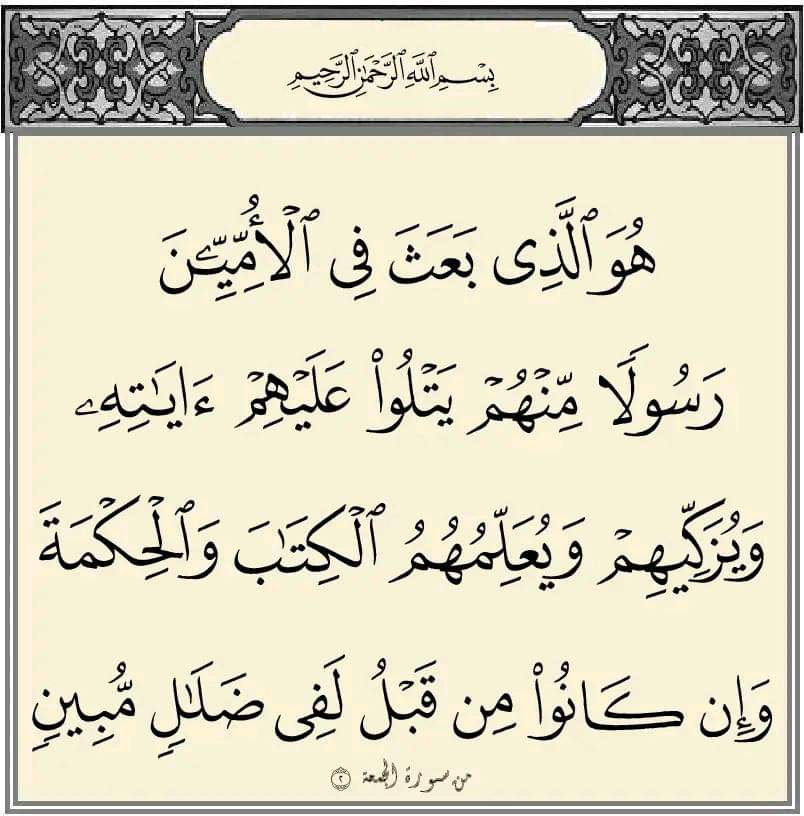 بِسْمِ ٱللَّهِ ٱلرَّحْمَٰنِ ٱلرَّحِيمِ
هُوَ ٱلَّذِى بَعَثَ فِى ٱلْأُمِّيِّـۧنَ
رَسُولًا مِّنْهُمْ يَتْلُوا۟ عَلَيْهِمْ ءَايَـٰتِهِۦ
وَيُزَكِّيهِمْ وَيُعَلِّمُهُمُ ٱلْكِتَـٰبَ وَٱلْحِكْمَةَ
وَإِن كَانُوا۟ مِن قَبْلُ لَفِى ضَلَـٰلٍ مُّبِينٍ
من سورة الجمعة ٢